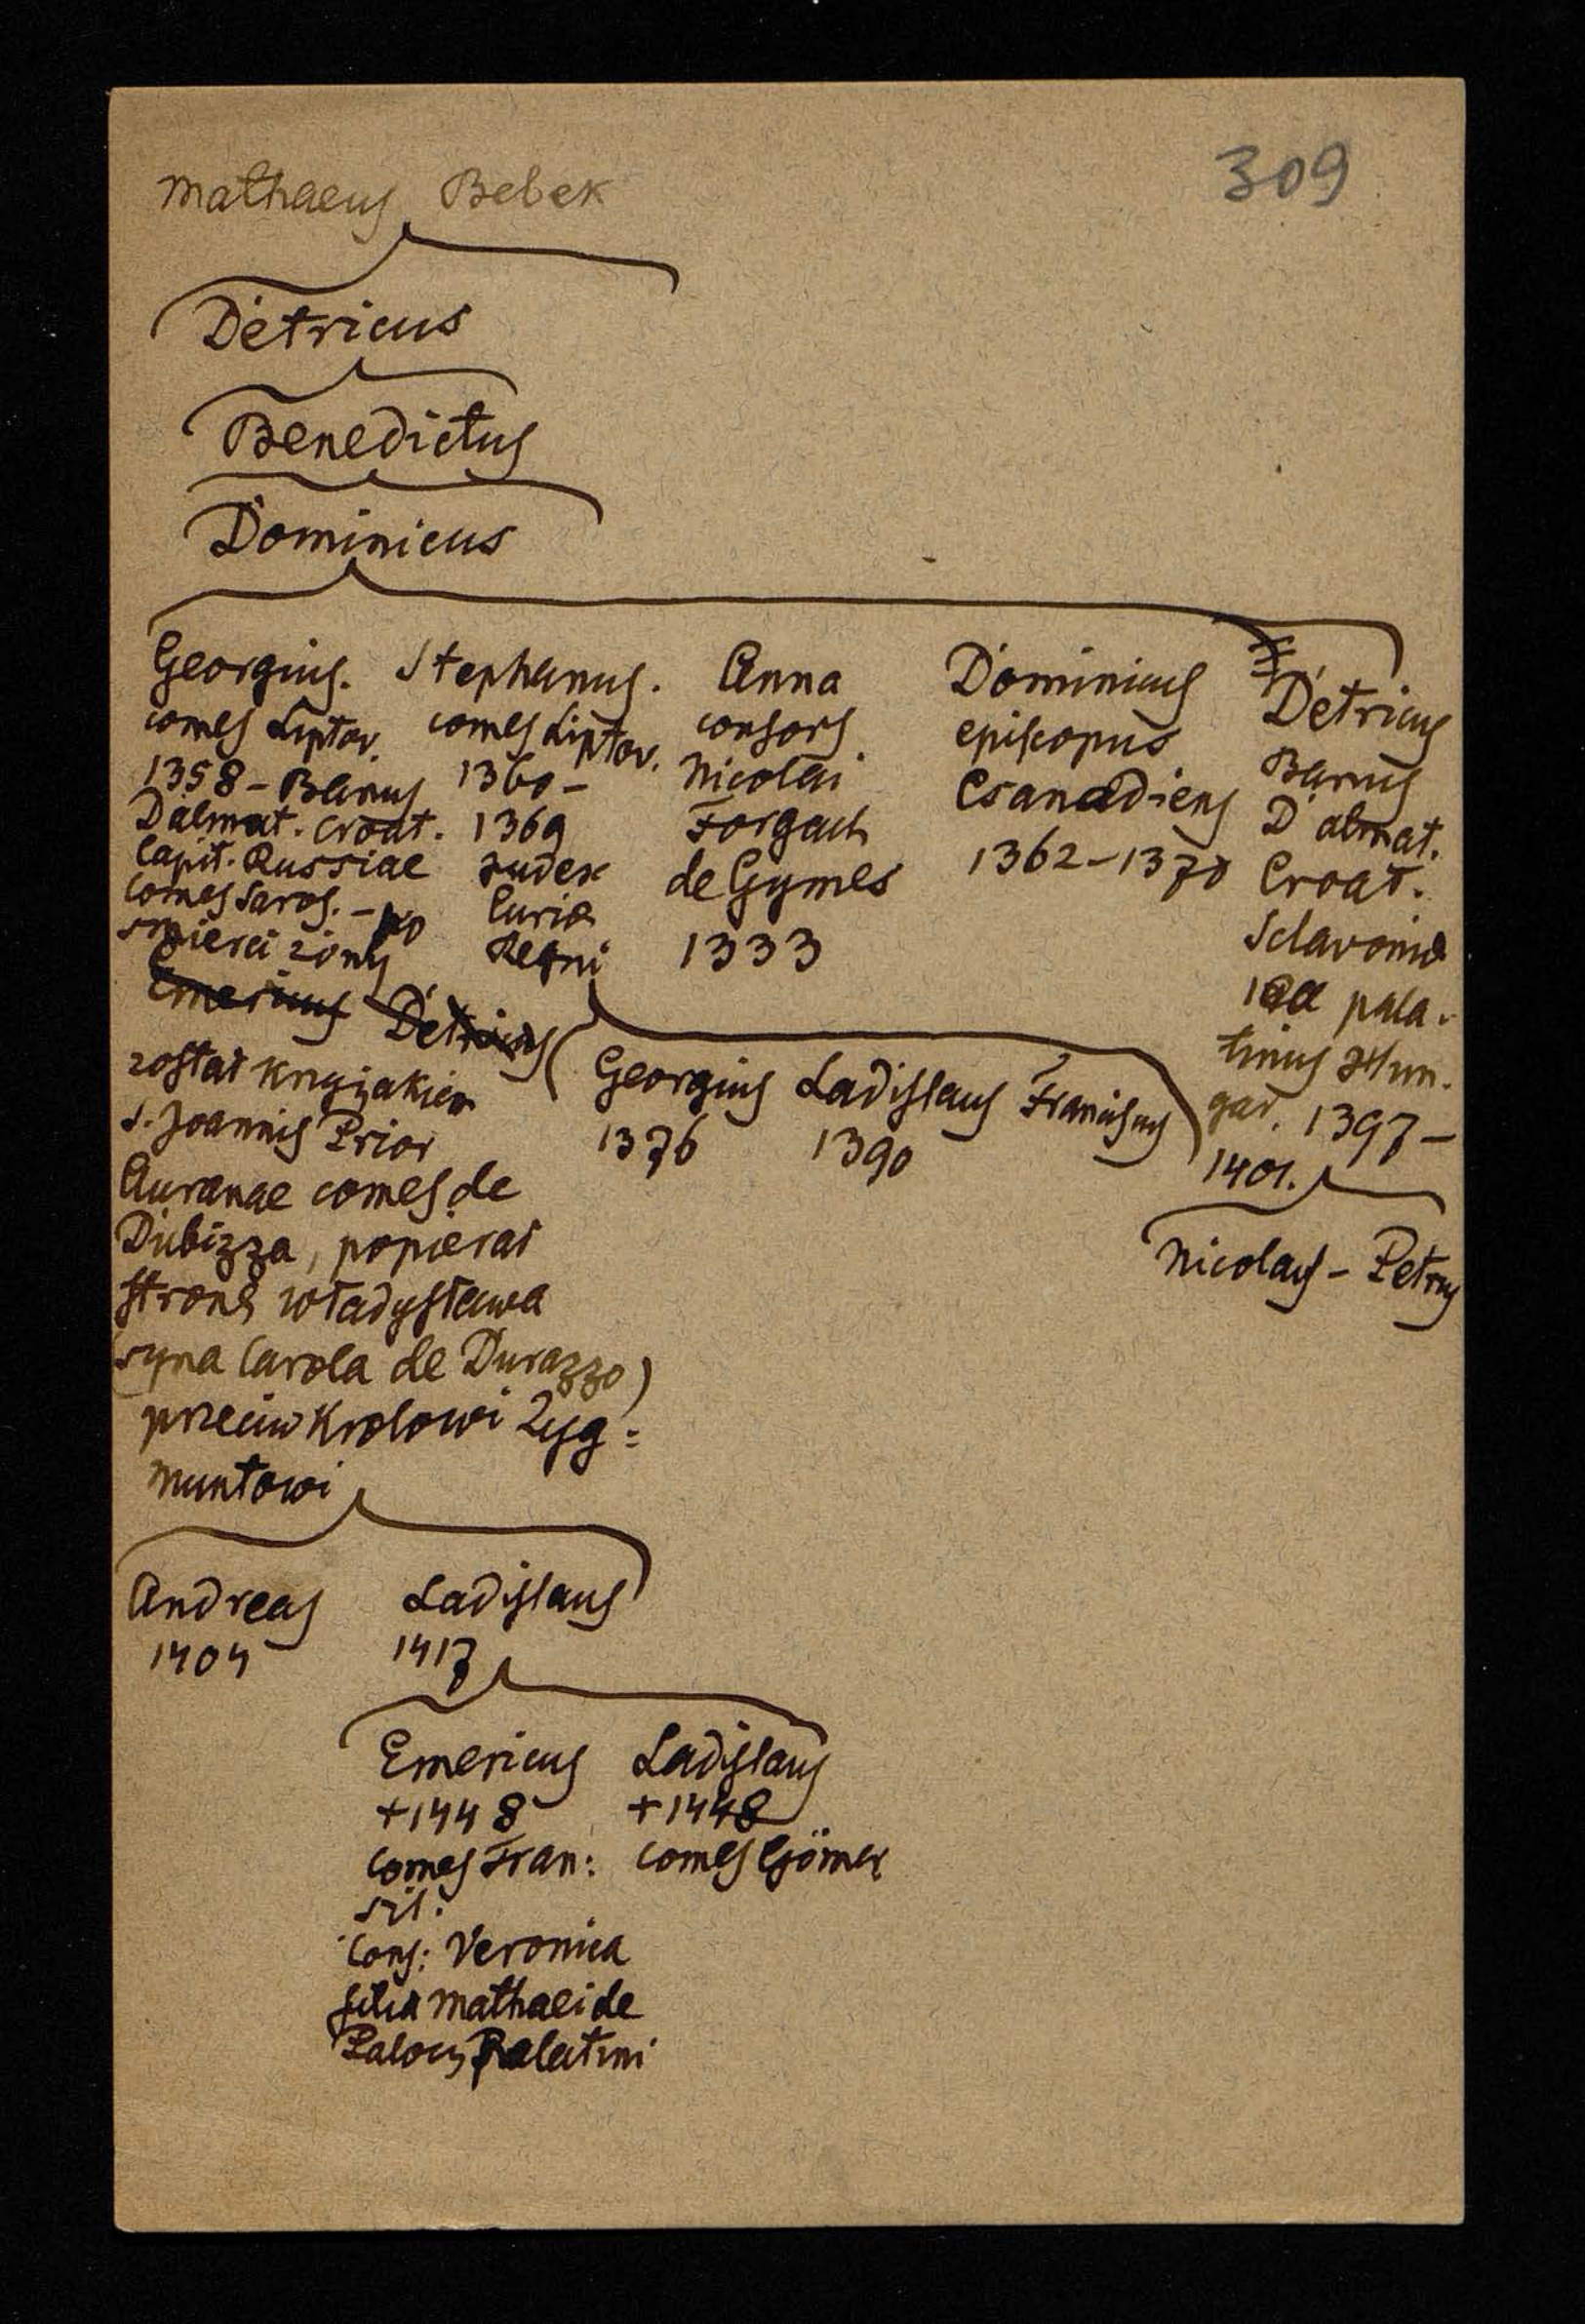 309
Mathaeus Bebek
Detricus
Benedictus
Dominicus
Georgius.
comes Liptov.
1358 - Banus
Dalmat. Croat.
Capit. Russiae
comes Saros. - po
smierci żony
Emericus Detricus
został krzyżakiem
S. Joannis Prior
Auranae comes de
Dubizza, popierał
stronę Władysława
(syna Carola de Durazzo)
przeciw Krolowi Zyg=
muntowi
Stephanus.
comes Liptov.
1360 -
1369
Judex
Curiæ
Regni
Anna
consors
Nicolai
Forgach
de Gymes
1333
Dominicus
episcopus
Csanadiens
1362-1370
Detricus
Banus
Dalmat.
Croat.
Sclavoniæ
pala-
tinus Hun-
gar. 1397-
1401.
Georgius Ladislaus Franciscus
1376 1390
Nicolaus - Petrus
Andreas Ladislaus
1404 1417
Emericus Ladislaus
+1448 +1448
comes Fran: comes Gömer
sil:
Cons: Veronica
filia Mathaei de
Palocz Palatini